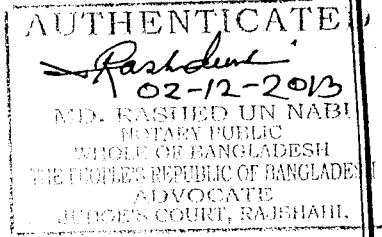 AUTHENTICATED
Rashdun
02-12-2013
MD. RASHED UN NABI
NOTARY PUBLIC
WHOLE OF BANGLADESH
THE PEOPLE'S REPUBLIC OF BANGLADESH
ADVOCATE
JUDGE'S COURT, RAJSHAHI.